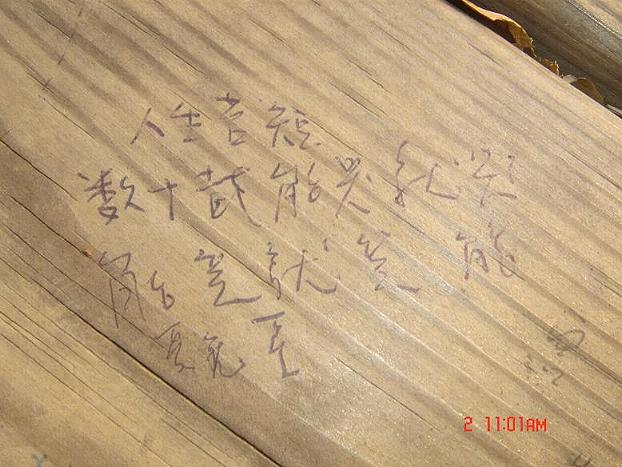 人生苦短
数十載能哭就哭
能笑就笑 能
2 11:01AM